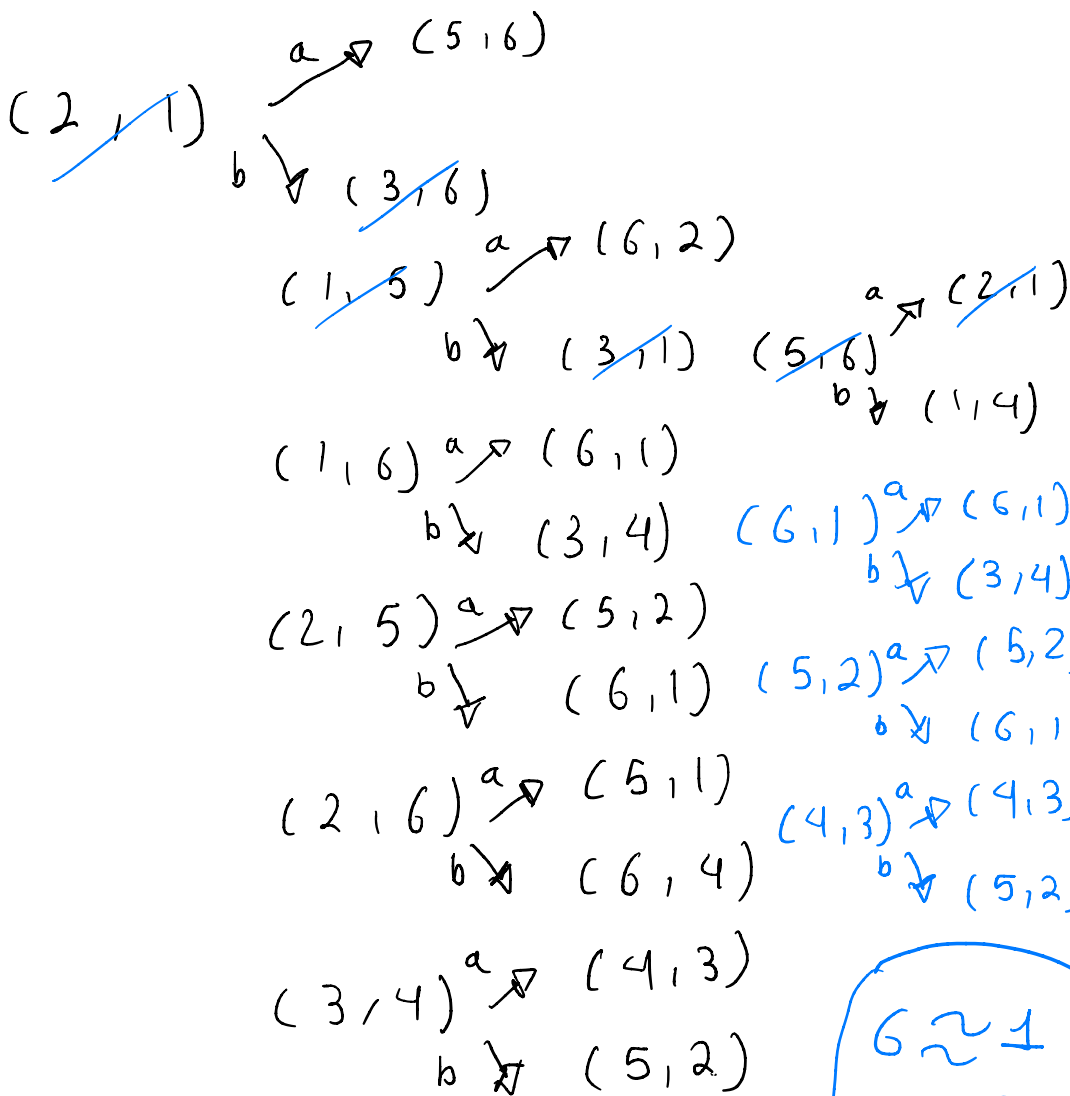 a (5,6)
(2,1)
b (3,6)
(1,5) a (6,2)
b (3,1)
(5,6) a (2,1)
b (1,4)
(1,6) a (6,1)
b (3,4)
(6,1) a (6,1)
b (3,4)
(2,5) a (5,2)
b (6,1)
(5,2) a (5,2
b (6,1
(2,6) a (5,1)
b (6,4)
(4,3) a (4,3
b (5,2
(3,4) a (4,3)
b (5,2)
6 ≈ 1